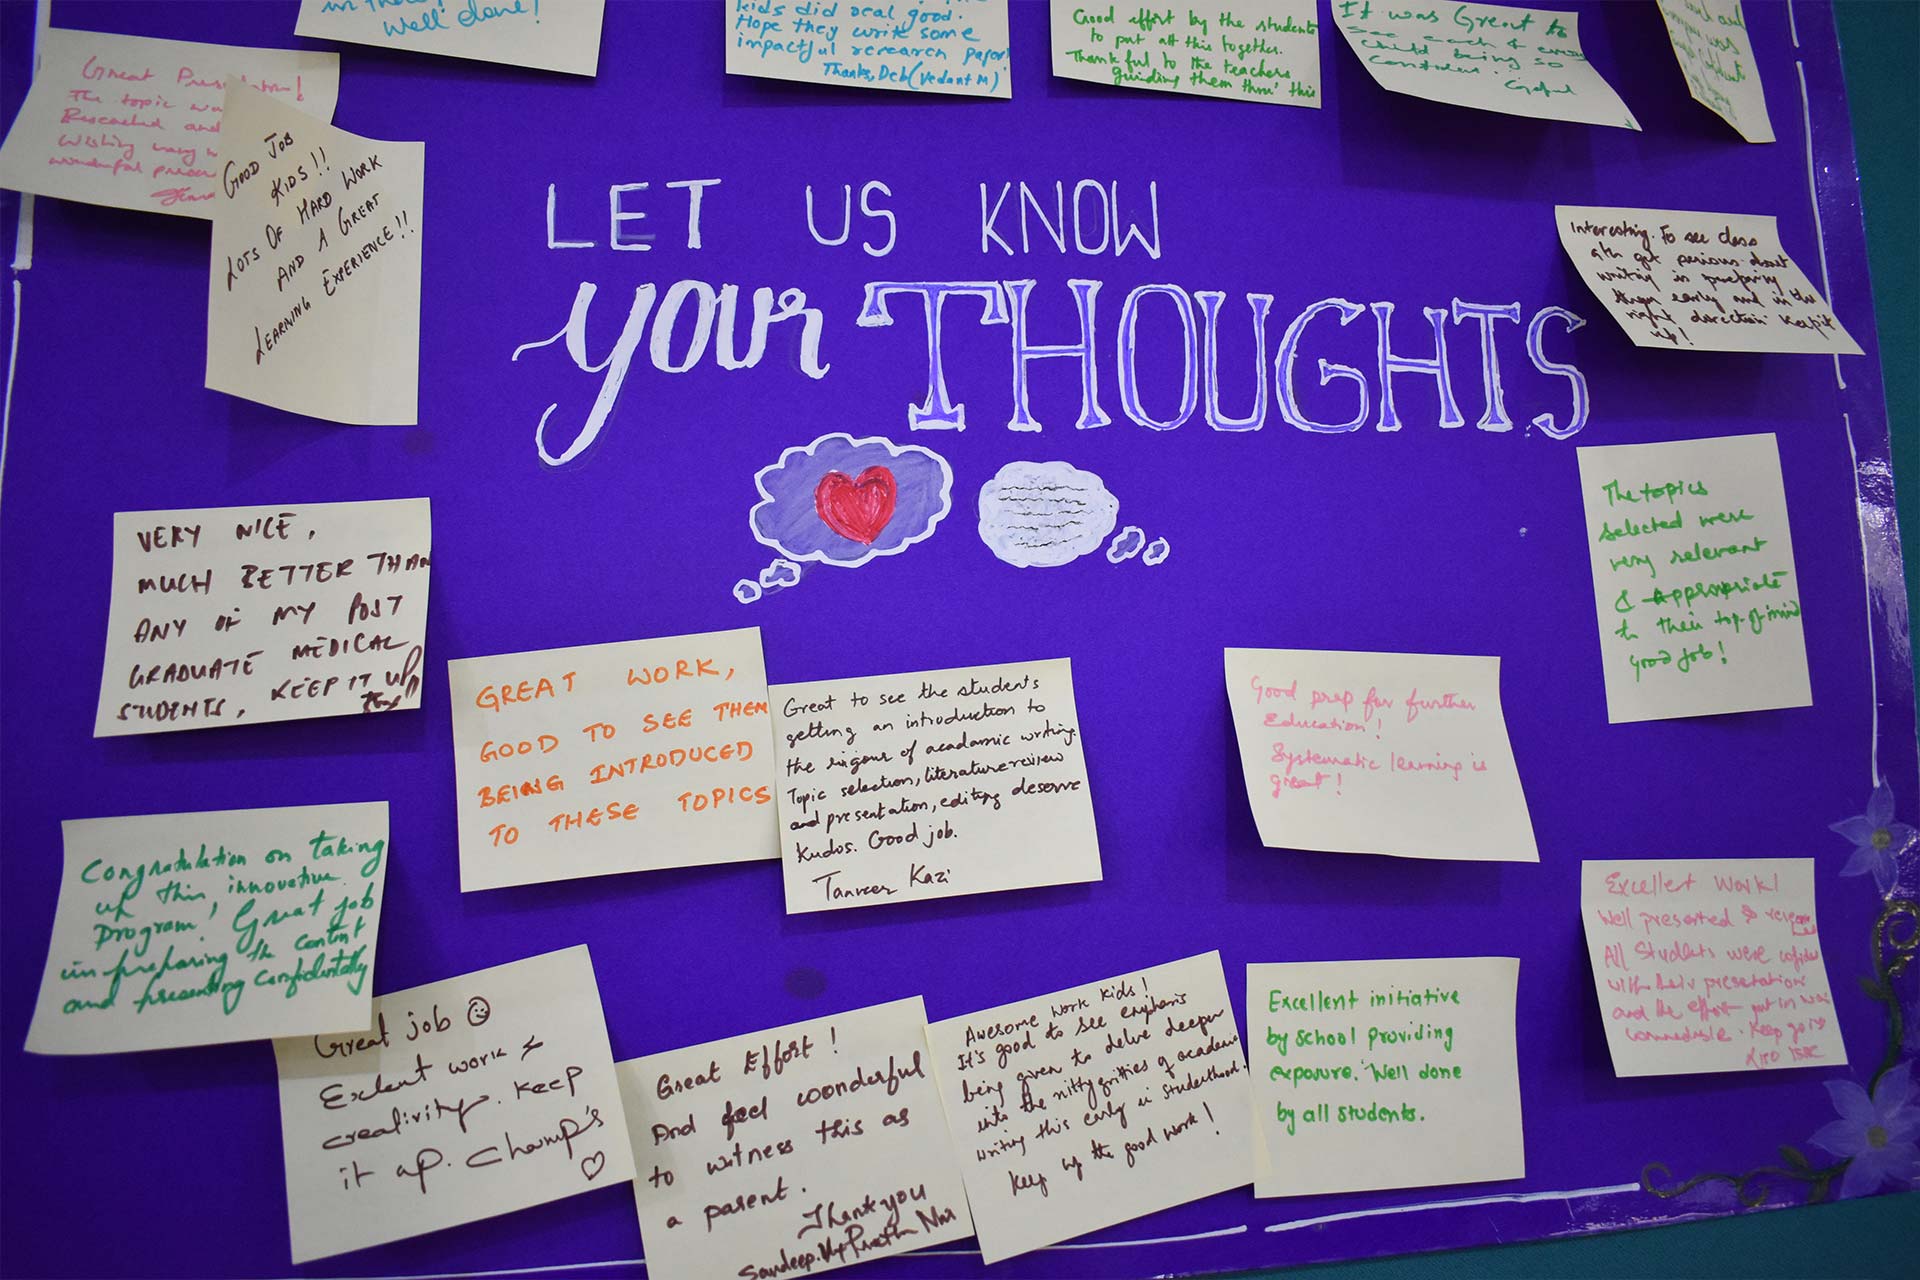 well done!
kids did real good.
Hope they write some
impactful research paper
Thanks, Deb (Vedant M)
Good effort by the students
to put all this together.
Thankful to the teachers
guiding them thru' this
It was Great to
see each & every
child being so
Great
The topic
and
Wishing
wonderful
GOOD JOB
KIDS!!
LOTS OF HARD WORK
AND A GREAT
LEARNING EXPERIENCE!!
LET US KNOW
your THOUGHTS
Interesting. To see class
9th get serious about
writing is preparing
them early and in the
right direction Keep it
up!
The topics
selected were
very relevant
& appropriate
to their top-of-mind
Good job!
VERY NICE,
MUCH BETTER THAN
ANY OF MY POST
GRADUATE MEDICAL
STUDENTS, KEEP IT UP
GREAT WORK,
GOOD TO SEE THEM
BEING INTRODUCED
TO THESE TOPICS
Great to see the students
getting an introduction to
the rigour of academic writing.
Topic selection, literature review
and presentation, editing deserve
kudos. Good job.
Tanveer Kazi
Good prep for further
Education!
Systematic learning is
great!
Congratulation on taking
up this innovative
Program! Great job
in preparing the content
and presenting confidentally
Excellent Work!
Well presented &
All Students were
with their presentation
and the effort put in was
Keep going
Great job
Exlent work &
creativity. Keep
it up. Champ's
Great Effort!
And feel wonderful
to witness this as
a parent.
Thank you
Sandeep
Awesome work kids!
It's good to see emphasis
being given to delve deeper
into the nitty gritties of academic
writing this early in studenthood.
Keep up the good work!
Excellent initiative
by school providing
exposure. Well done
by all students.